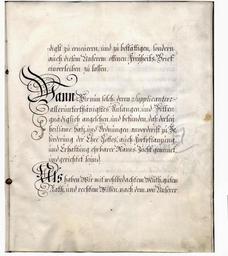 digst zu erneueren, und zu bestättigen, sondern
auch diesem Unserem offnen Freyheits-Brief
einverleiben zu lassen.
Wann Wir nun solch deren Supplicanten
allerunterthänigstes Anlangen, und Bitten
gnädiglich angesehen, und befunden, daß derley
Satz, und Ordnungen, zu
förderung der Ehre Gottes, auch Fortpflantzung
und Erhaltung ehrbarer Manns-Zucht gemeinet
und gerichtet seynd.
Als
haben Wir mit wohlbedachtem Muth, guten
Rath, und rechtem Wissen, nach dem von Unserer